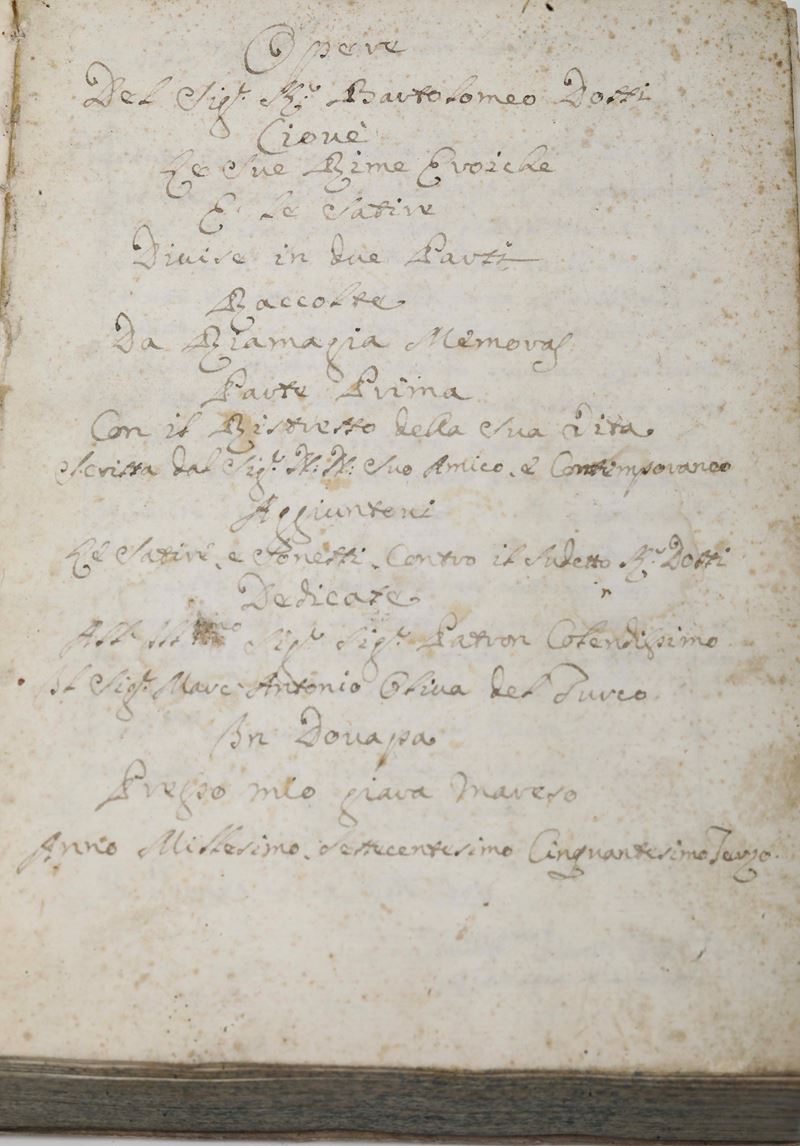 Opere
Del Sig.r K.r Bartolomeo Dotti
Ciouè
Le Sue Rime Eroiche
E le Satire
Diuise in due Parti
Raccolte
Da Riamagia Memoras
Parte Prima
Con il Ristretto della Sua Vita
Scritta dal Sig.r N: N: Suo Amico, è Contemporaneo
Aggiuntoui
Le Satire, e Sonetti, Contro il sudetto K.r Dotti
Dedicate
All' Ill.mo Sig.r Sig.r Patron Colendissimo
Il Sig.r Marc Antonio Oliua del Turco
In Douapa
Presso mio giara mareso
Anno Millesimo, Settecentesimo Cinquantesimo Terzo.